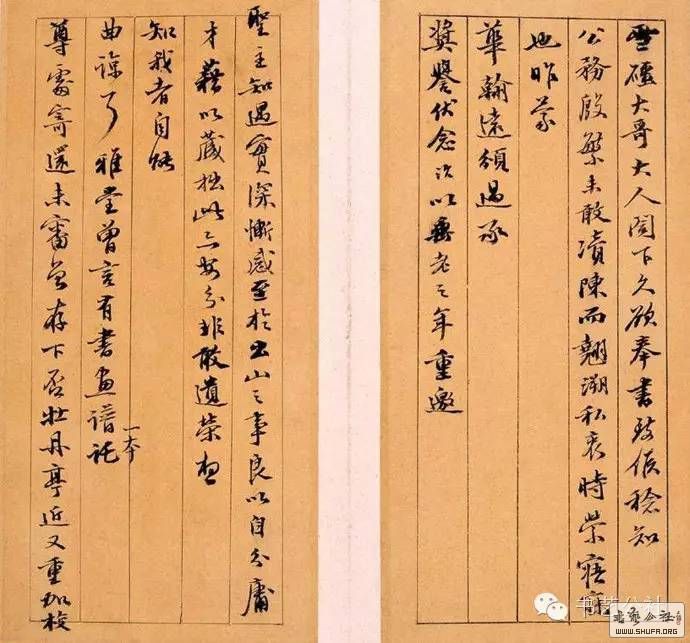 雪礓大哥大人阁下久欲奉书致候稔知
公務殷繁未敢渎陳而翘溯私衷時縈寤寐
也昨蒙
華翰遠頒過承
奬譽伏念詒以垂老之年重邀
聖主知遇實深慚感至於出山之事良以自分庸
才藉以藏拙此亦安分非敢遺榮想
知我者自悟
曲諒了雅堂曾言有書画譜一本託
尊處寄還未審曾存下否牡丹亭近又重加校
书艺公社
书艺公社
WWW.SHUFA.ORG